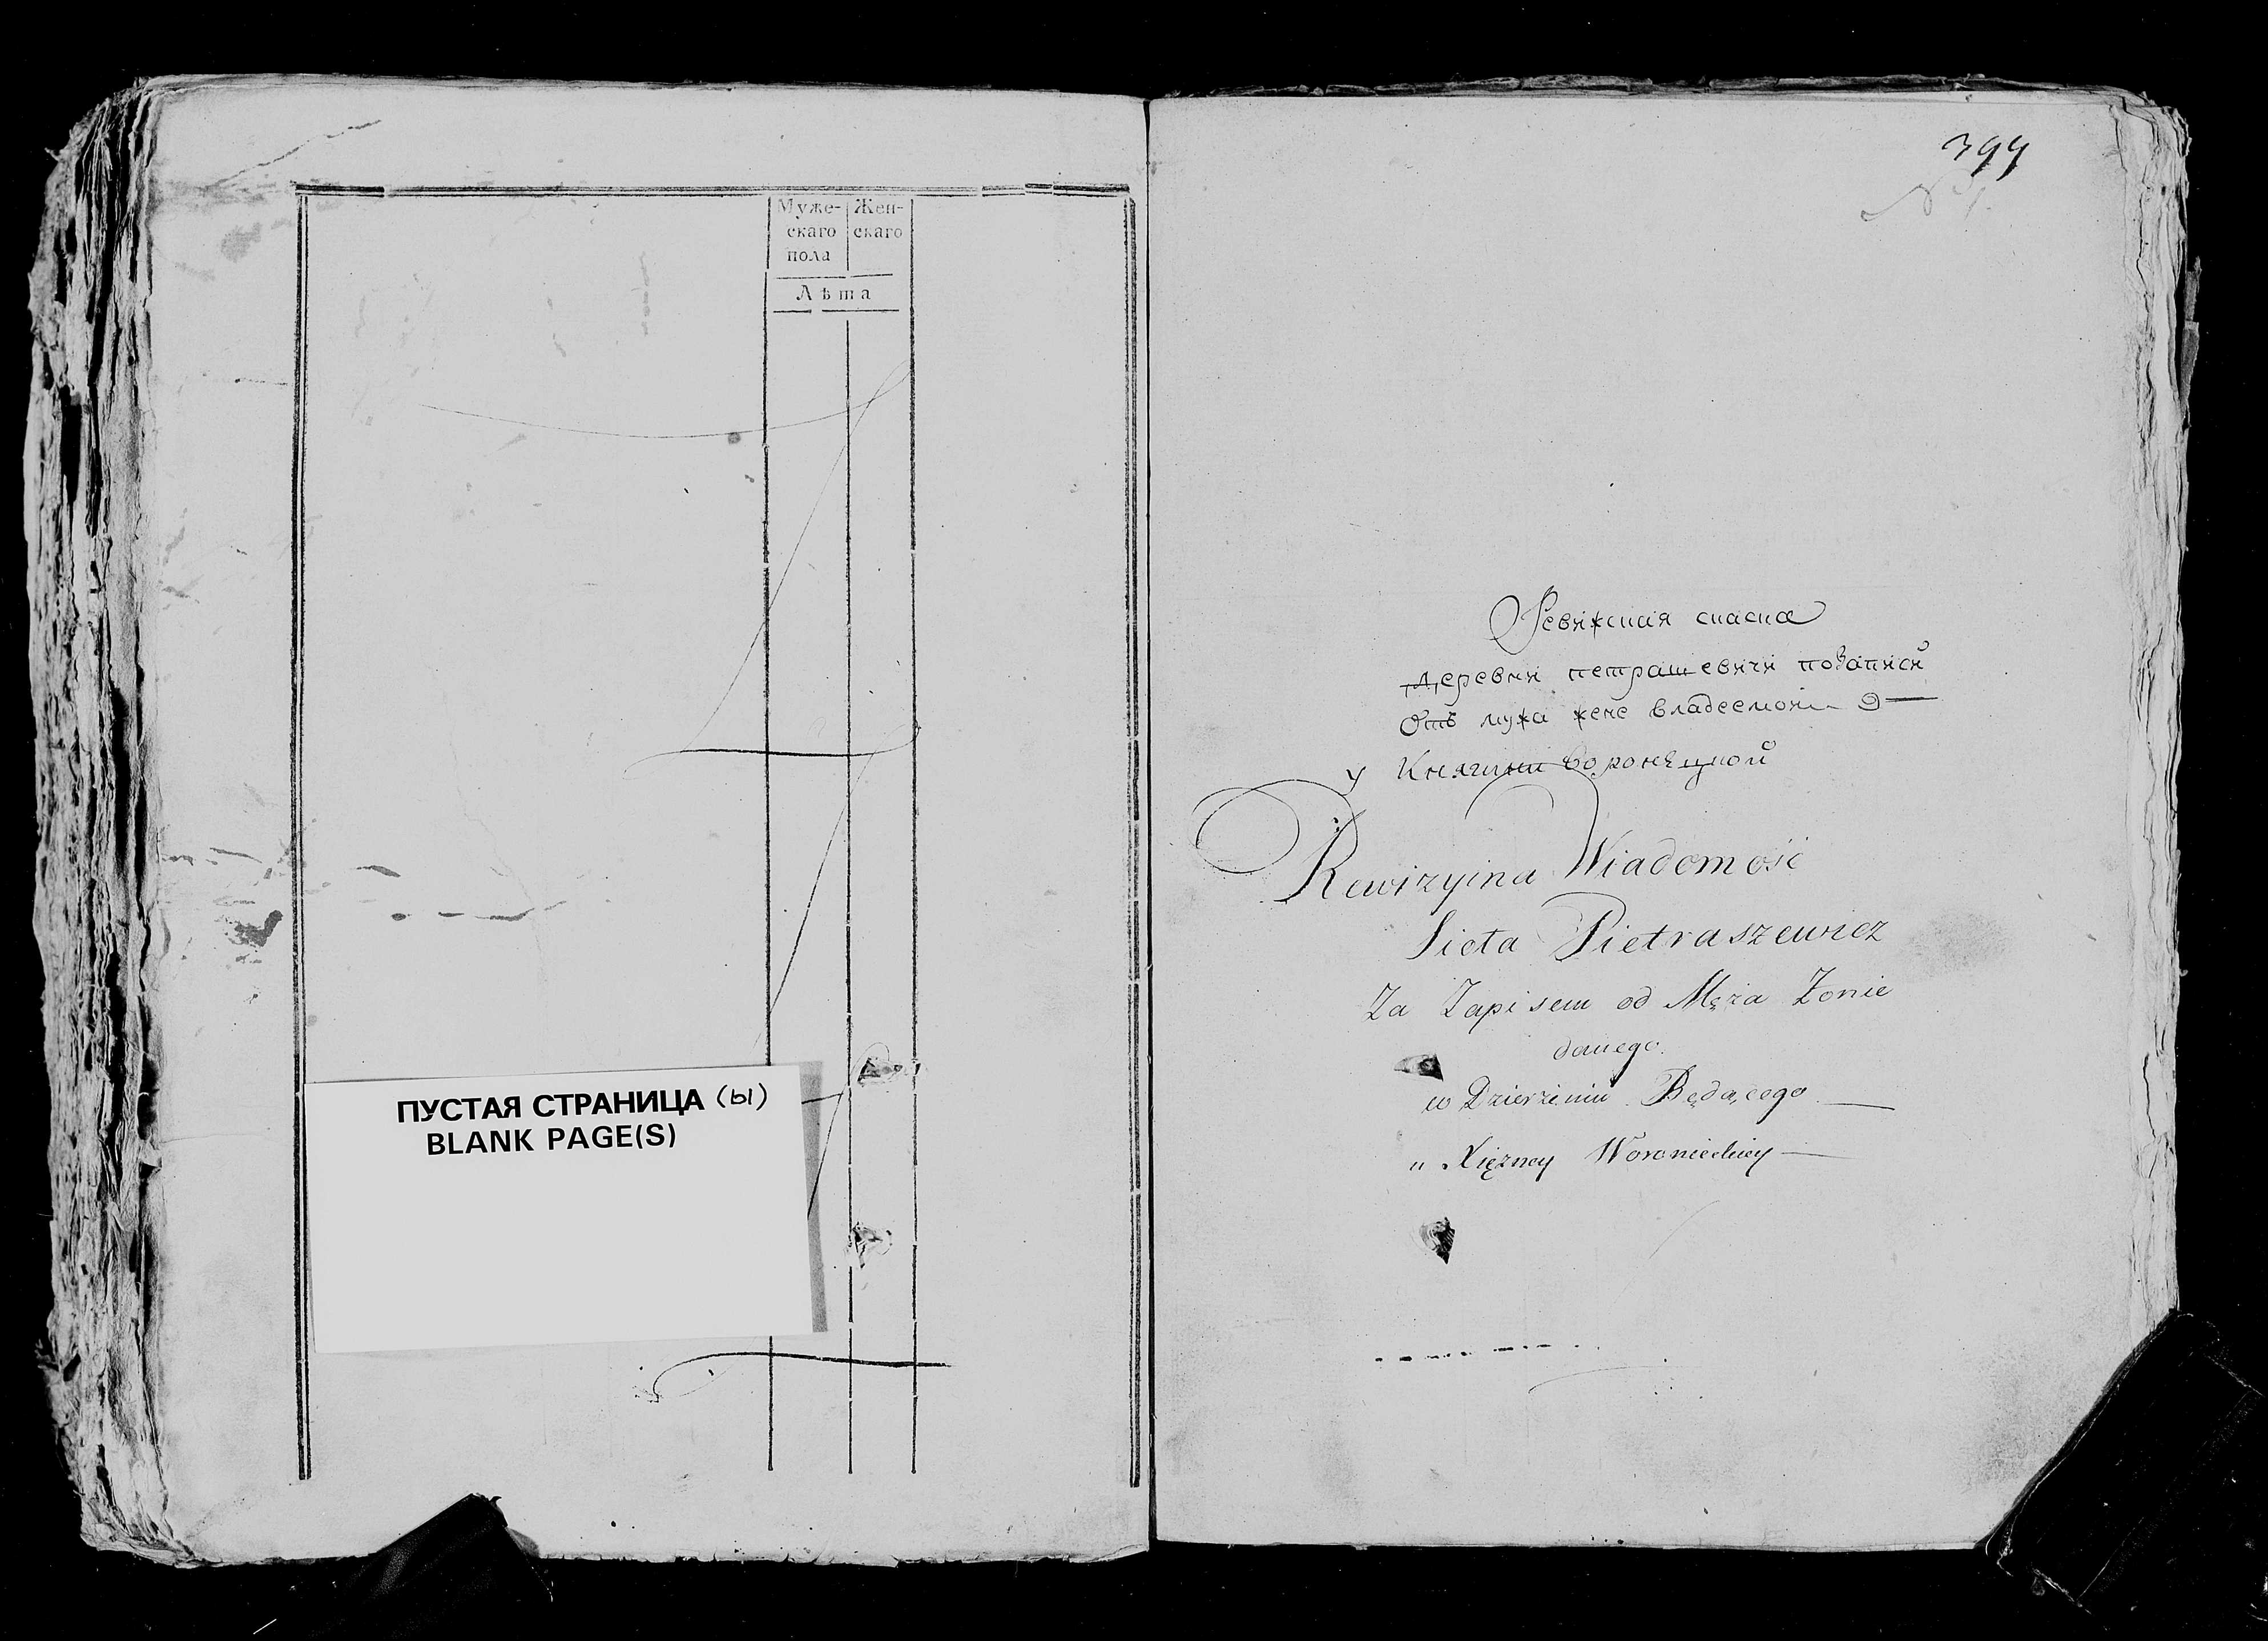 Муже-
скаго
пола
Жен-
скаго
Лѣта
ПУСТАЯ СТРАНИЦА (ы)
BLANK PAGE(S)
399
Ревижская скаска
деревни петрашевичи позаписи
Отъ мужа жене владеемой
у Княгини воронецкой
Rewizyina Wiadomość
Sieta Pietraszewicz
Za Zapisem od Męża Żonie
danego.
w Dzierżeniu Będącego
u Xiężney Woronieckiey